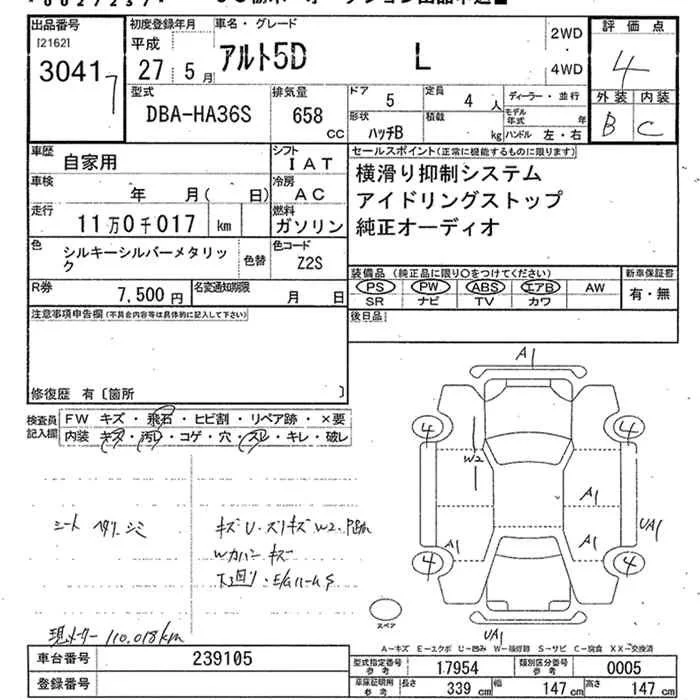 出品番号
[2162]
3041 7
初度登録年月
平成
27 5月
車名・グレード
アルト5D L
2WD
・
4WD
評価点
4
外装 内装
B C
型式
DBA-HA36S
排気量
658
CC
ドア
5
定員
4 人
ディーラー・並行
形状
ハッチB
積載
kg
モデル年式
年
ハンドル 左・右
車歴
自家用
シフト
IAT
車検
年 月( 日)
冷房
AC
走行
11万0千017 km
燃料
ガソリン
色
シルキーシルバーメタリック
色替
色コード
Z2S
R券
7,500円
名変通知期限
月 日
セールスポイント(正常に機能するものに限ります)
横滑り抑制システム
アイドリングストップ
純正オーディオ
装備品(純正品に限り○をつけてください)
新車保証書
PS PW ABS エアB AW
有・無
SR ナビ TV カワ
後日品
注意事項申告欄(不具合内容等は具体的に記入して下さい)
修復歴 有〔箇所 〕
検査員記入欄
FW キズ・飛石・ヒビ割・リペア跡・×要
内装 キズ・汚レ・コゲ・穴・スレ・キレ・破レ
シート ヘタリ シミ
キズU・スリキズW2・
Wカバー キズ
下回り・E/Gルーム S
現メーター 110,018km
A1
4
4
W2
A1
UA1
A1
A1
4
4
スペア
UA1
A―キズ E―エクボ U―凹み W―板修跡 S―サビ C―腐食 XX―交換済
車台番号
239105
登録番号
型式指定番号
参考
17954
類別区分番号
参考
0005
車庫証明用
参考
長さ
339 cm
幅
147 cm
高さ
147 cm